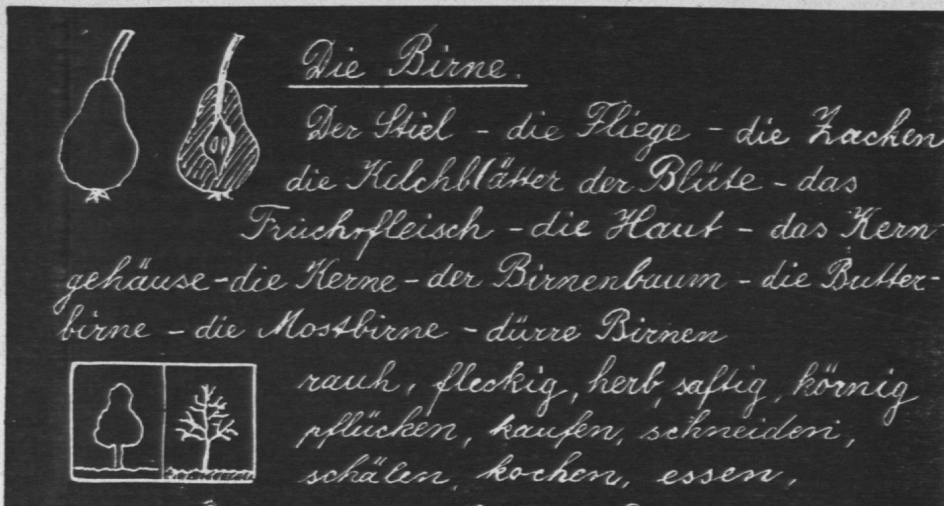 Die Birne.
Der Stiel - die Fliege - die Zacken
die Kelchblätter der Blüte - das
Fruchtfleisch - die Haut - das Kern
gehäuse - die Kerne - der Birnenbaum - die Butter-
birne - die Mostbirne - dürre Birnen
rauh, fleckig, herb, saftig, körnig
pflücken, kaufen, schneiden,
schälen, kochen, essen,